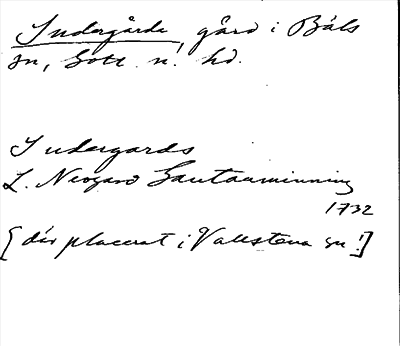 Indergårda, gård i Bäls
sn, Gotl. n. hd.
Indergards
L. Neogard Gautauminning
1732
[där placerat i Vallstena sn!]